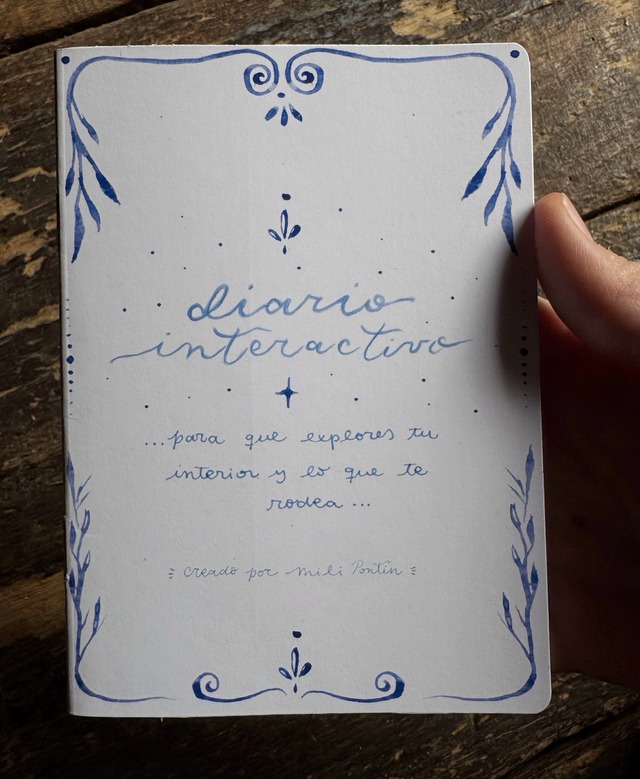 diario
interactivo
...para que explores tu
interior y lo que te
rodea...
creado por mili Pontin